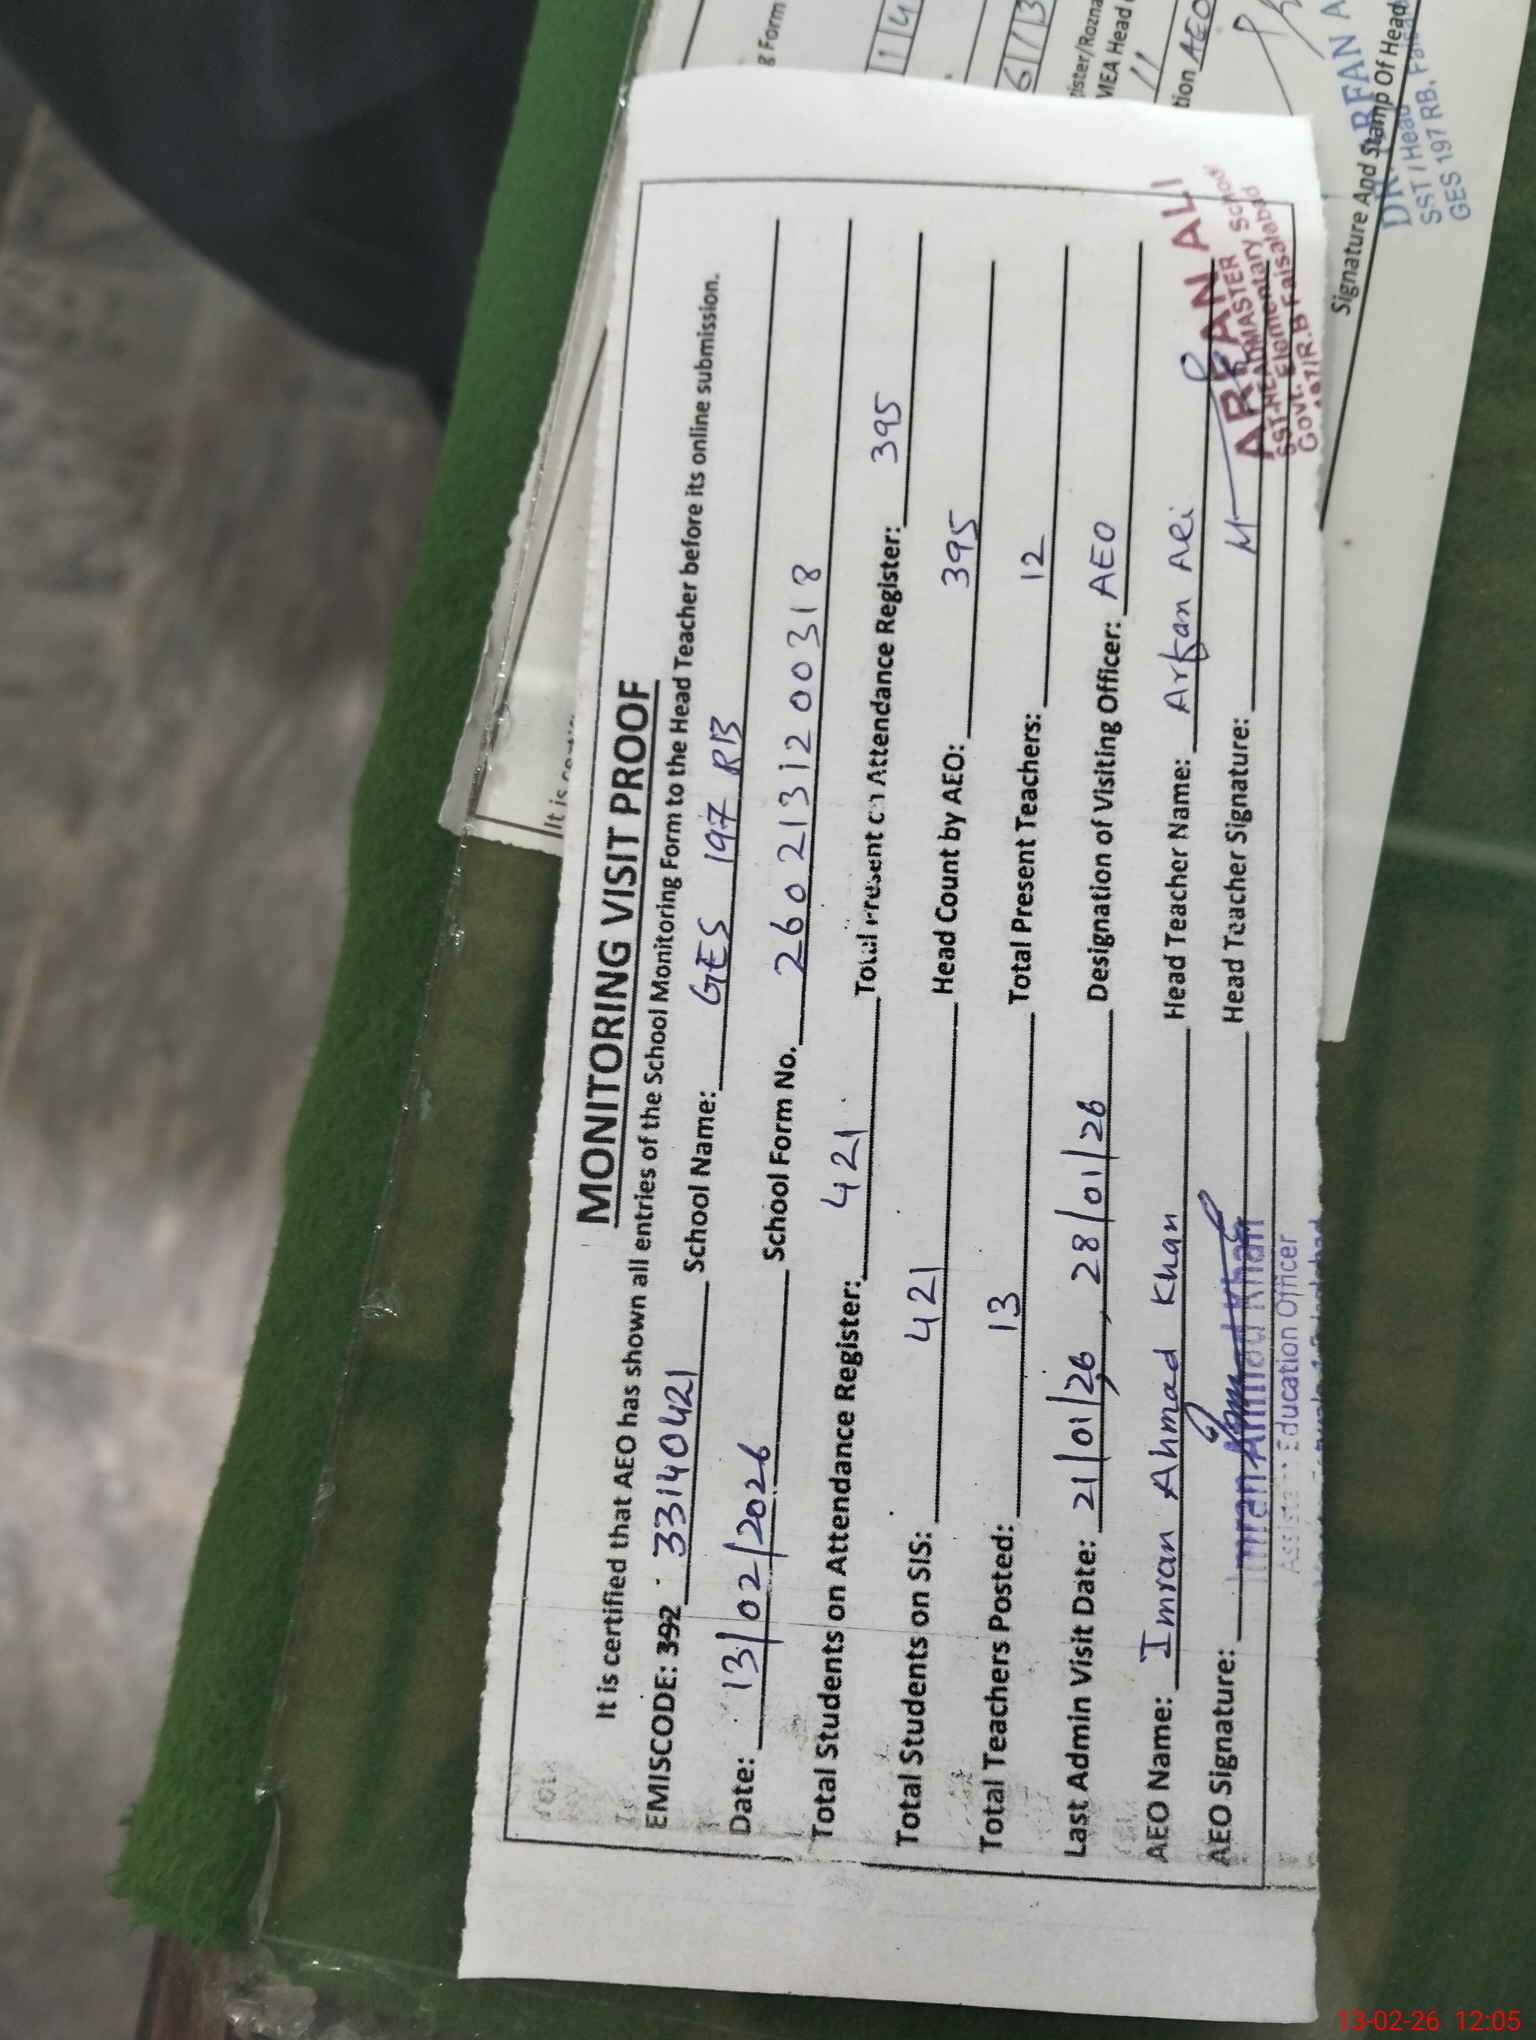 MONITORING VISIT PROOF
It is certified that AEO has shown all entries of the School Monitoring Form to the Head Teacher before its online submission.
EMISCODE: 392 33140421 School Name: GES 197 RB
Date: 13/02/2026 School Form No. 2602131200318
Total Students on Attendance Register: 421 Total Present on Attendance Register: 395
Total Students on SIS: 421 Head Count by AEO: 395
Total Teachers Posted: 13 Total Present Teachers: 12
Last Admin Visit Date: 21/01/26, 28/01/26 Designation of Visiting Officer: AEO
AEO Name: Imran Ahmad Khan Head Teacher Name: Arfan Ali
AEO Signature: Head Teacher Signature:
Imran Ahmad Khan
Assistant Education Officer
ARFAN ALI
SST/HEADMASTER
Govt. Elementary School
197/R.B Faisalabad
It is
g Form
14
6/13
ister/Rozna
MEA Head
tion AEO
Signature And Stamp Of Head
DR. IRFAN A
SST / Head
GES 197 RB, Fai
13-02-26 12:05